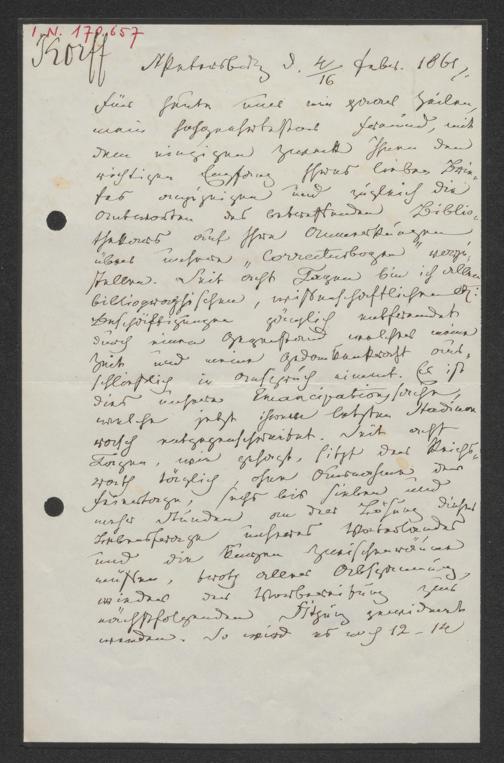 I. N. 170.657
Korff
St Petersburg d. 4/16 Febr. 1861.
Für heute nur ein paar Zeilen,
mein hochgeehrtester Freund, mit
dem einzigen Zweck Ihnen den
richtigen Empfang Ihres lieben Brie-
fes anzuzeigen und zugleich die
Antworten des betreffenden Biblio-
thekars auf Ihre Anmerkungen
über unsere "Correcturbogen"
stellen. Seit acht Tagen bin ich allen
bibliographischen, wissenschaftlichen
Beschäftigungen gänzlich entfremdet
durch einen Gegenstand welcher meine
Zeit und meine Gedankenkraft aus-
schliesslich in Anspruch nimmt. Es ist
dies unsere Emancipationssache
welche jetzt ihrem letzten Stadium
rasch entgegenschreitet. Seit acht
Tagen, wie gesagt, sitzt der Reichs-
rath täglich, ohne Ausnahme der
Feiertage, sechs bis sieben und
mehr Stunden an der Lösung dieser
Lebensfrage unseres Vaterlandes
und die kurzen Zwischenräume
müssen, trotz aller Abspannung
wieder der Vorbereitung zur
nächstfolgenden Sitzung gewidmet
werden. So wird es noch 12-14